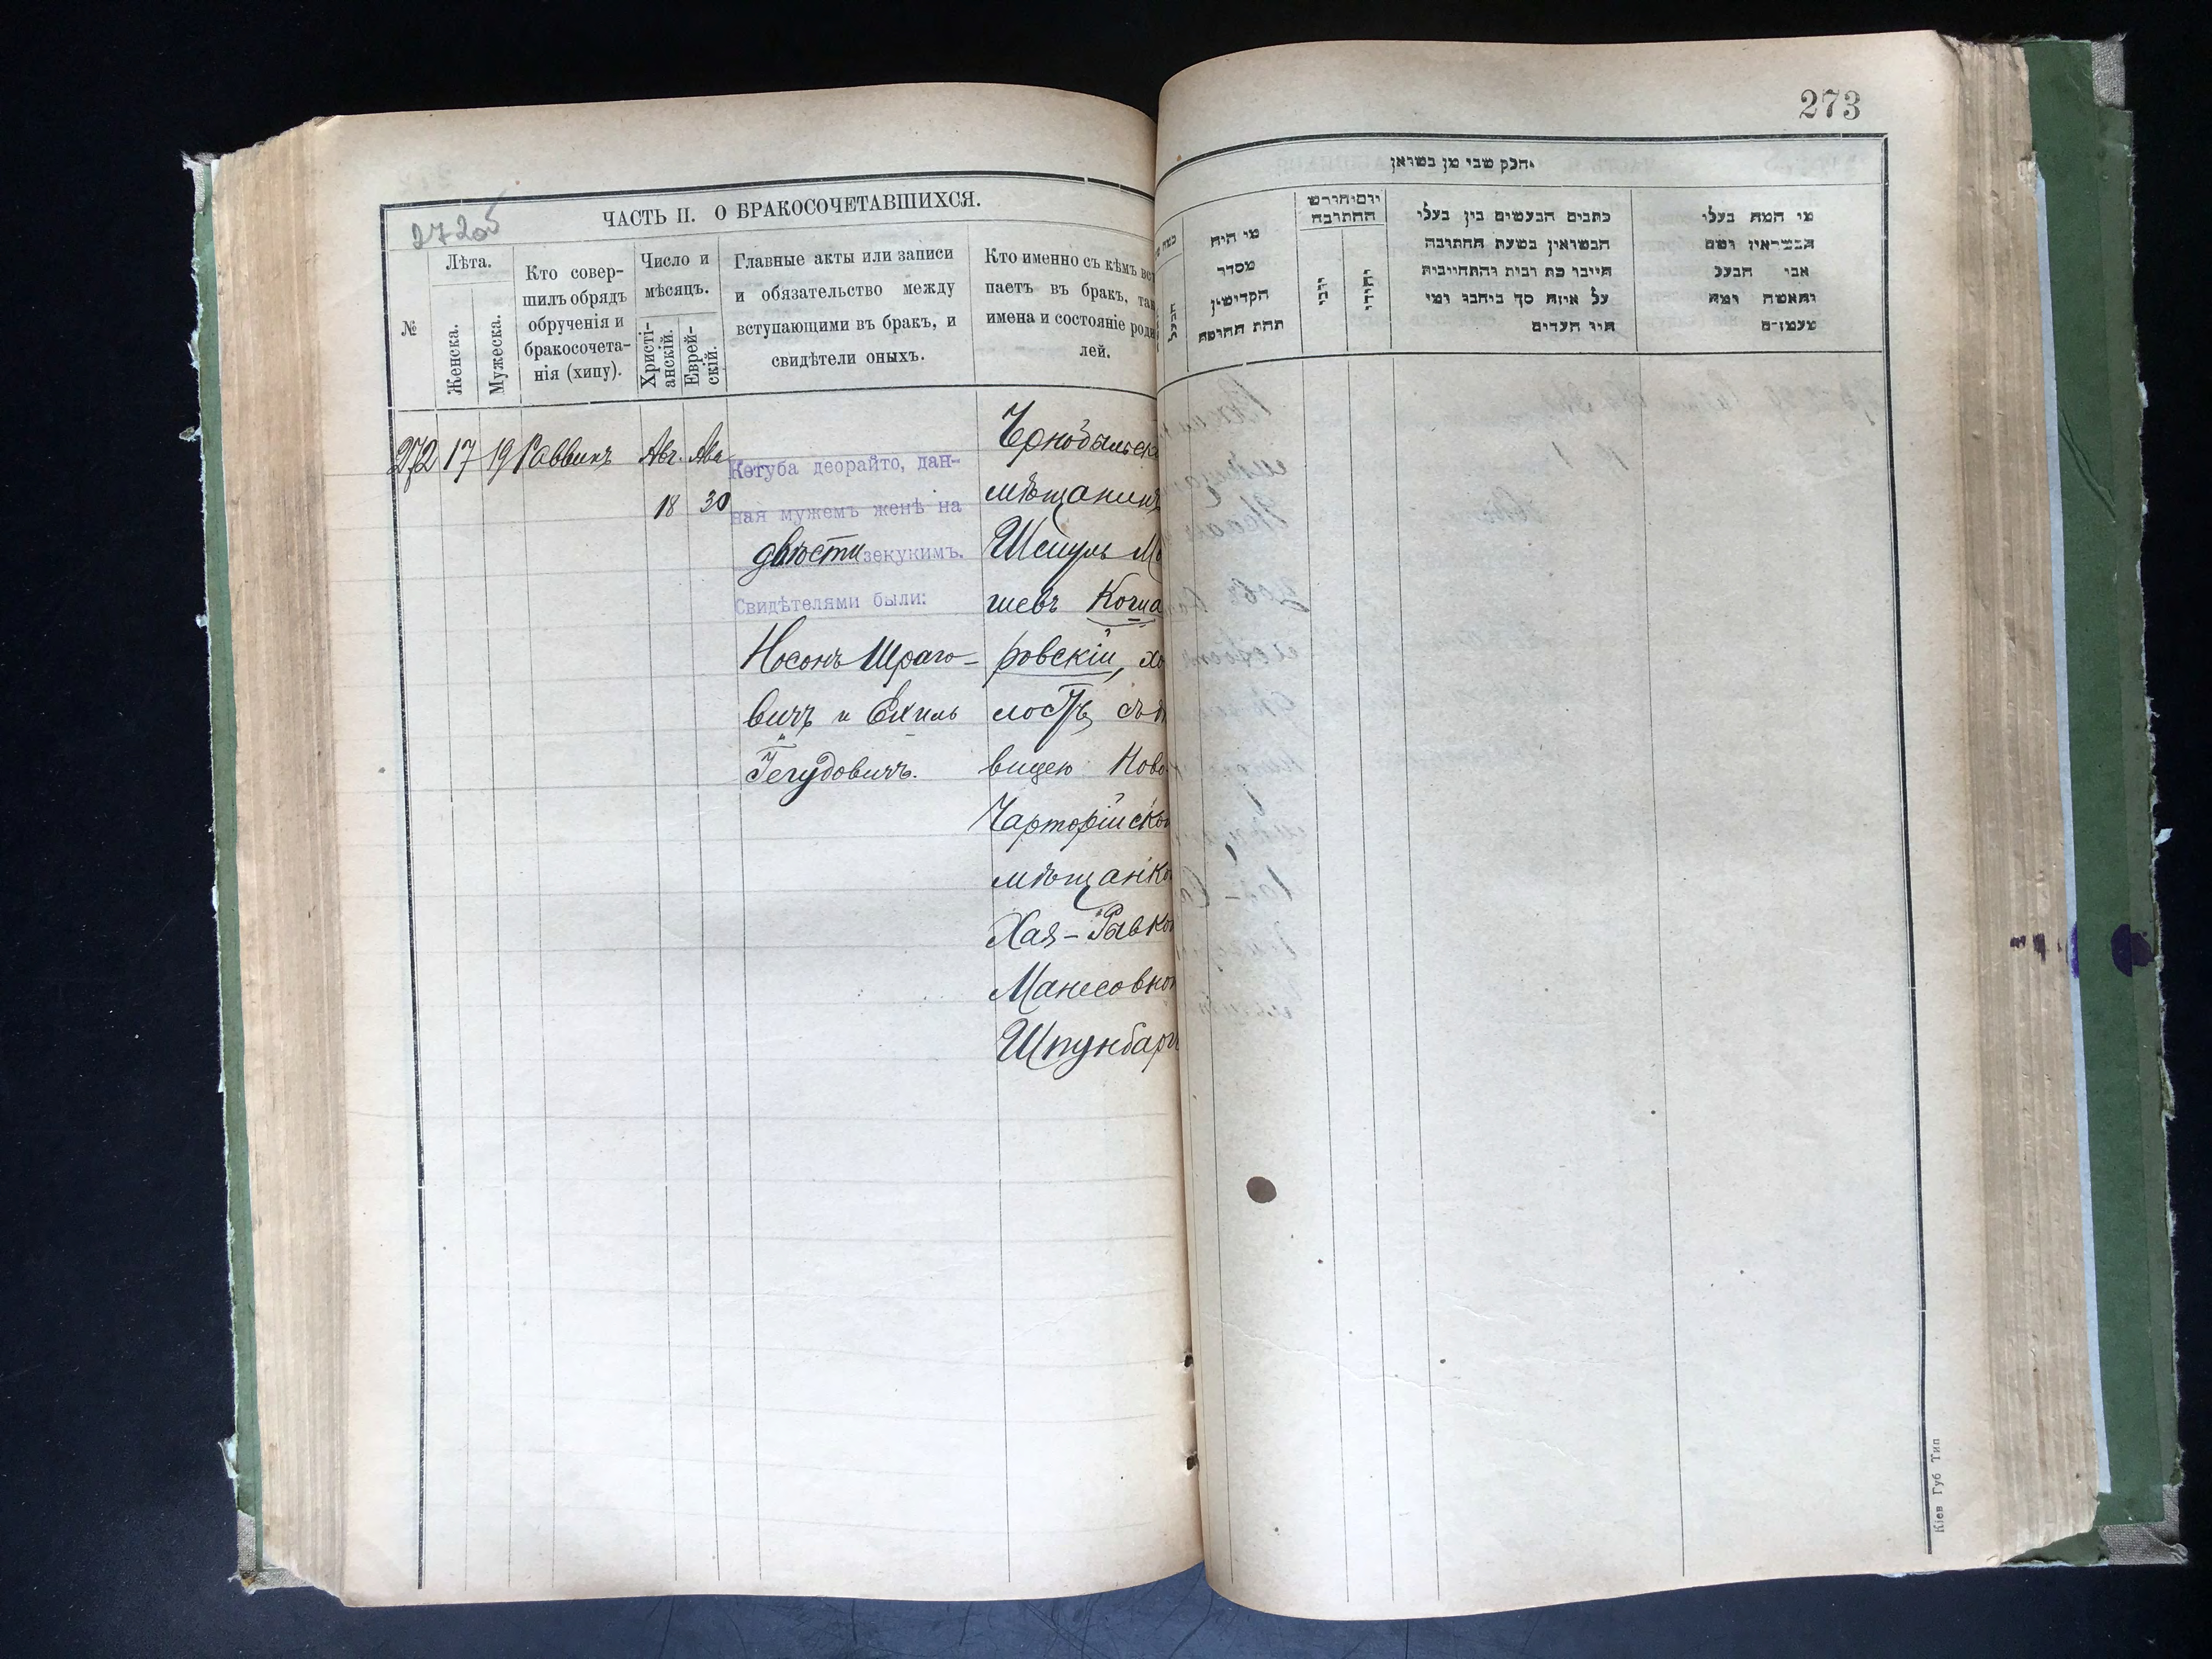 272об
ЧАСТЬ II. О БРАКОСОЧЕТАВШИХСЯ.
№
Лѣта.
Женска.
Мужеска.
Кто совер-
шилъ обрядъ
обрученія и
бракосочета-
нія (хипу).
Число и
мѣсяцъ.
Христі-
анскій.
Еврей-
скій.
Главные акты или записи
и обязательство между
вступающими въ бракъ, и
свидѣтели оныхъ.
Кто именно съ кѣмъ вст
паетъ въ бракъ, так
имена и состояніе роди
лей.
272 17 19 Раввинъ Авг. Ава
18 30
Кетуба деорайто, дан-
ная мужемъ женѣ на
двѣсти зекукимъ.
Свидѣтелями были:
Носонъ Шраго-
вичъ и Ехиль
Гегудовичъ.
Чернобыльск
мѣщанинъ
Шмуль Мо
шевъ Когша
ровскій, хо
лостъ, съ дѣ
вицею Ново
Чарторійско
мѣщанко
Хая-Рывко
Манесовно
Шпунбарг
273
חלק שני מן נשואין
הבעל
מי היה
מסדר
הקדושין
תחת החופה
יום וחודש
החתונה
יוני
יהודי
כתבים הנעשים בין בעלי
הנשואין בשעת החתונה
חייבו כת דבית והתחייבות
על איזה סך ניתנו ומי
היו העדים
מי המה בעלי
הנשואין ושם
אבי הבעל
והאשה ומה
מעמדם
Кіев Губ Тип